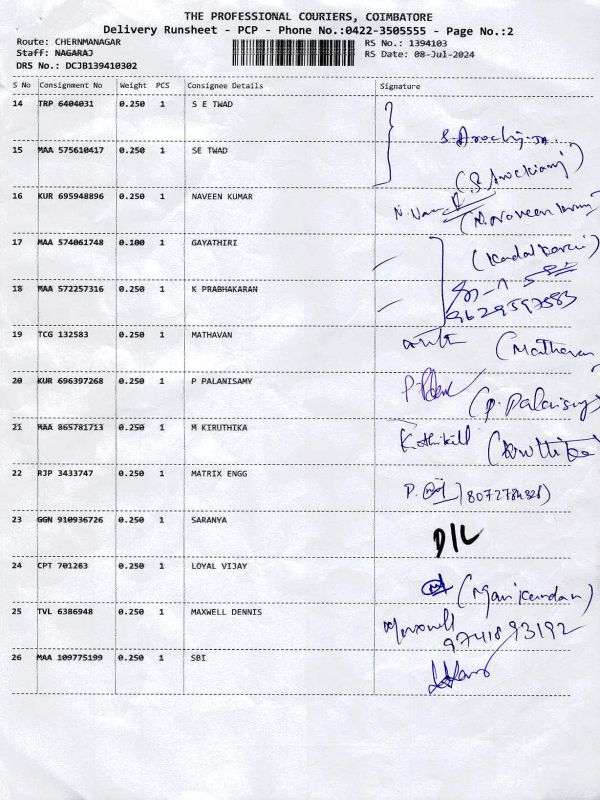 THE PROFESSIONAL COURIERS, COIMBATORE
Delivery Runsheet - PCP - Phone No.:0422-3505555 - Page No.:2
Route: CHERNMANAGAR
Staff: NAGARAJ
DRS No.: DCJB139410302
RS No.: 1394103
RS Date: 08-Jul-2024
S No Consignment No Weight PCS Consignee Details Signature
14 TRP 6404031 0.250 1 S E TWAD
15 MAA 575610417 0.250 1 SE TWAD
16 KUR 695948896 0.250 1 NAVEEN KUMAR
17 MAA 574061748 0.100 1 GAYATHIRI
18 MAA 572257316 0.250 1 K PRABHAKARAN
9629597583
19 TCG 132583 0.250 1 MATHAVAN (Mathavan
20 KUR 696397268 0.250 1 P PALANISAMY
21 MAA 865781713 0.250 1 M KIRUTHIKA
22 RJP 3433747 0.250 1 MATRIX ENGG
23 GGN 910936726 0.250 1 SARANYA D/L
24 CPT 701263 0.250 1 LOYAL VIJAY (Manikandan)
25 TVL 6386948 0.250 1 MAXWELL DENNIS Maxwell
9741893192
26 MAA 109775199 0.250 1 SBI